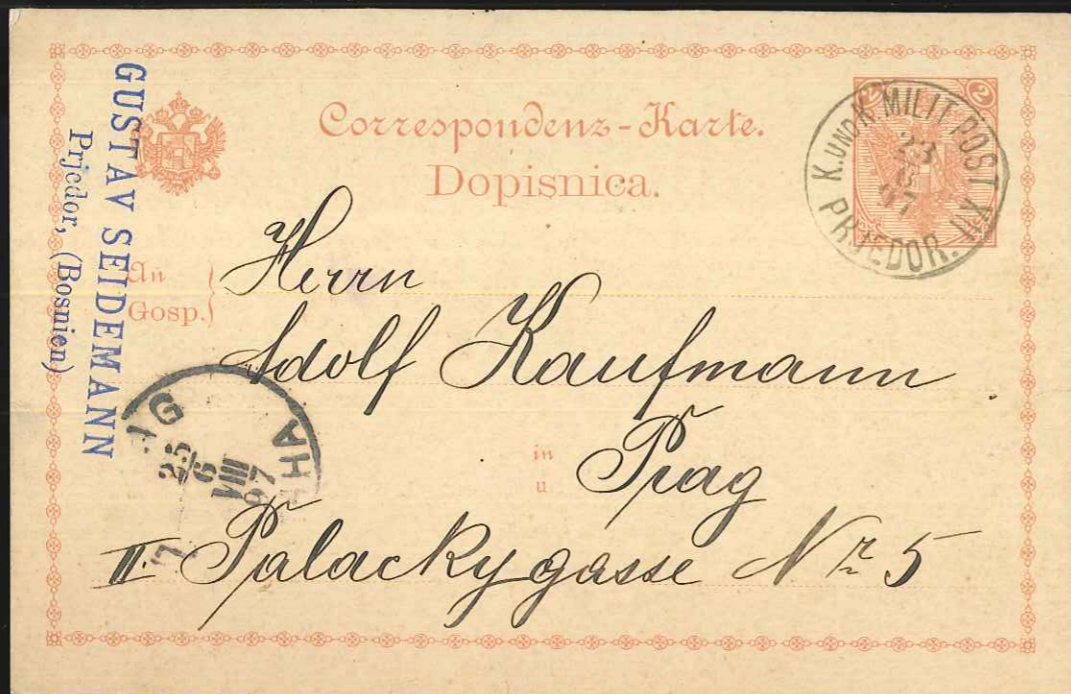 GUSTAV SEIDEMANN
Prjedor, (Bosnien)
Correspondenz-Karte.
Dopisnica.
2 2
K. UND K. MILIT. POST XVII
23
6
97
PRJEDOR.
An
Gosp.
Herrn
Adolf Kaufmann
in
u
Prag
II. Palackygasse Nr. 5
AG
25
6
VIII
97
HA